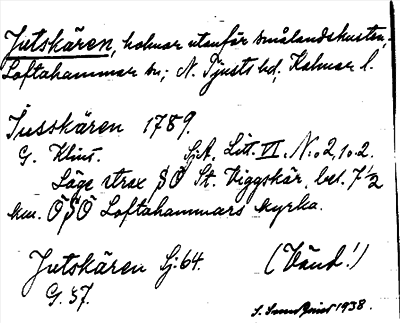 Jutskären, holmar utanför smålandskusten,
Loftahammar sn; N. Tjusts hd, Kalmar l.
Jusskären 1789.
G. Klint. Sj.A. Litt. VI. N:o 2, 1 o. 2.
Läge strax SÖ St. Viggskär, bel. 7 1/2
km. ÖSÖ Loftahammars kyrka.
Jutskären Sj: 64. (Vänd!)
G. 57.
1938.